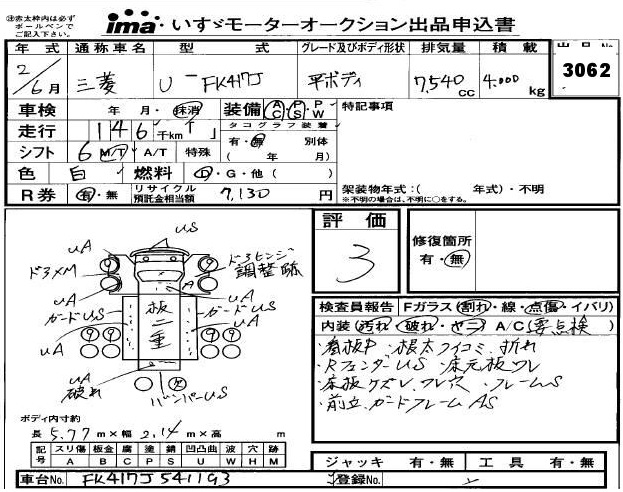 ㊟赤太枠内は必ず
ボールペンで
ご記入下さい。
ima いすゞモーターオークション出品申込書
年式 通称車名 型式 グレード及びボディ形状 排気量 積載 出品No.
2/6月 三菱 U-FK417J 平ボディ 7,540cc 4,000kg 3062
車検 年 月・抹消 装備 AC PS PW 特記事項
走行 146千km タコグラフ装着
有・無 別体
シフト 6 M/T・A/T 特殊 ( 年 月)
色 白 燃料 D・G・他( )
R券 有・無 リサイクル預託金相当額 7,130円
架装物年式:( 年式)・不明
※不明の場合は、不明に○をする。
評価 3
修復箇所
有・無
uA uS
ドヨメM ドヨヒンジ
調整跡
uA A
ガードuS 板二重 ガードuS
uA uA
uA
破れ バンパーuS
検査員報告 Fガラス(割れ・線・点傷・イバリ)
内装(汚れ・破れ・ヤニ) A/C(要点検)
・看板P ・根太クイコミ、折れ
・RフェンダーuS ・床元板ワレ
・床板ケズレ、ワレ穴 ・フレームS
・前立、ガードフレームAS
ボディ内寸約
長 5.77m×幅 2.14m×高 m
記号 スリ傷 板金 腐 塗 錆 凹凸曲 波 穴 跡
A B C P S U W H M
ジャッキ 有・無 工具 有・無
車台No. FK417J 541193 登録No.